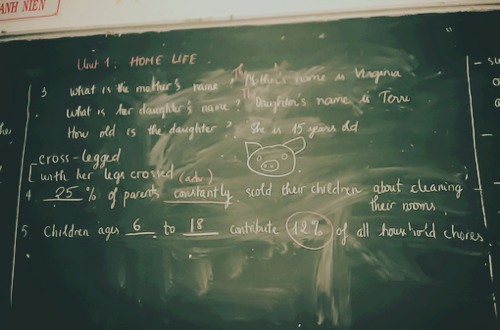 ANH NIEN
Unit 1: HOME LIFE
3 What is the mother's name ? The Mother's name is Virginia
What is her daughter's name ? The Daughter's name is Terri
How old is the daughter ? She is 15 years old
cross-legged
with her legs crossed (adv.)
4. 25 % of parents constantly scold their children about cleaning
their rooms
5 Children ages 6 to 18 contribute 12% of all household chores